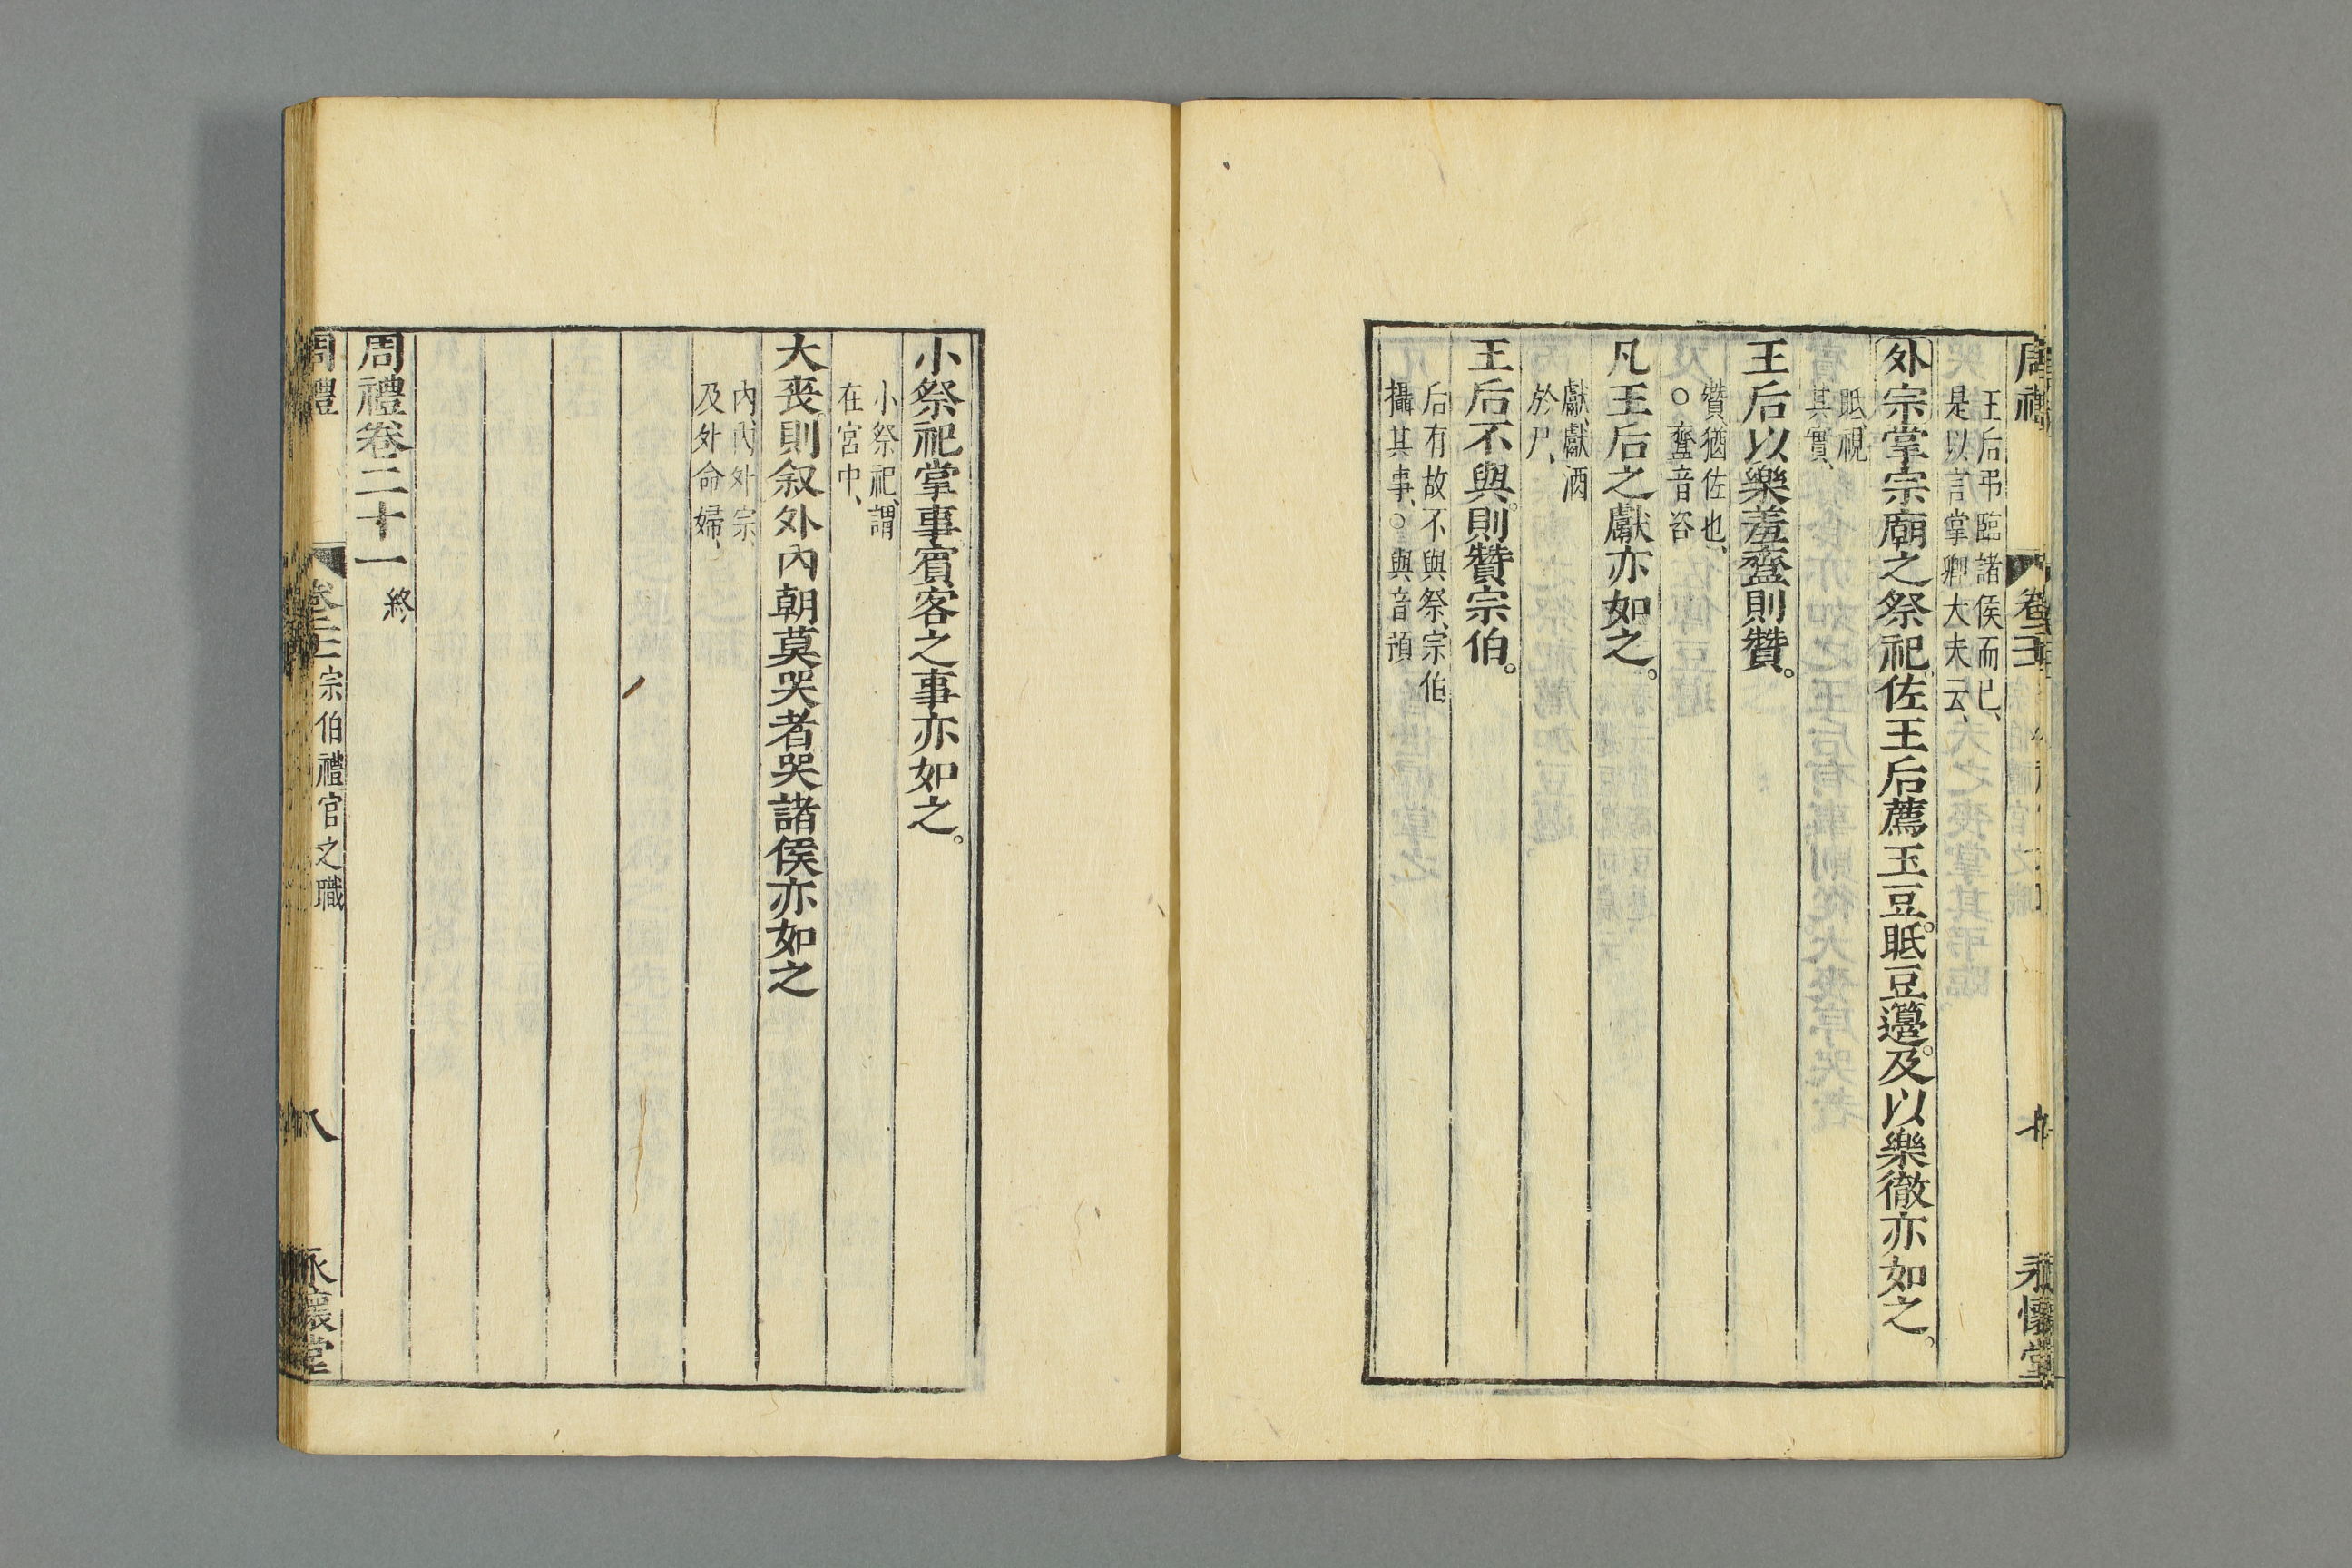 周禮
卷二十一
永懷堂
王后弔臨諸侯而已、
是以言掌卿大夫云、
外宗掌宗廟之祭祀。佐王后薦玉豆。眡豆籩。及以樂徹亦如之。
眡、視
其實、
王后以樂羞齍則贊。
贊猶佐也、
○齍音咨
凡王后之獻亦如之。
獻、獻酒
於尸、
王后不與。則贊宗伯。
后有故不與祭、宗伯
攝其事、○與音預
小祭祀掌事。賓客之事亦如之。
小祭祀、謂
在宮中、
大喪則叙外內朝莫哭者。哭諸侯亦如之
內、內外宗、
及外命婦、
周禮卷二十一 終
周禮
卷二十一 宗伯禮官之職
八
永懷堂